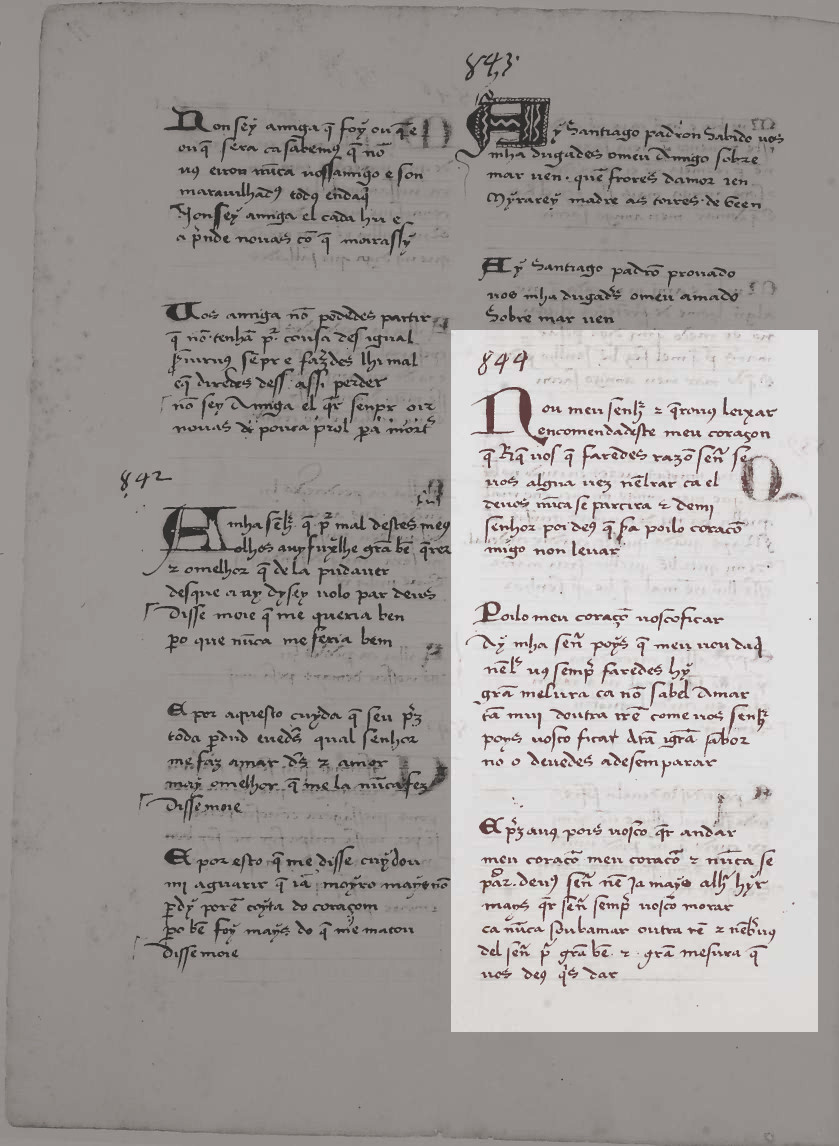 Non sey amiga q̄ foy ou q̄ e
ou q̄ sera ca sabemꝯ q̄ nō
uꝯ euon nūca uosso amigo e son
marauilhadꝯ todꝯ endaq̄
Non ssey amiga el cada hu e
a p̄nde nouas cō q̄ moirassy
Uos amiga nō podedes partir
q̄ nō tenhā p̄ cousa desigual
seruiruꝯ sēpr e fazedes lhi mal
e q̄ diredes dess assi perder
nō sey Amiga el q̄r senpr oir
nouas de pouca prol pera mort̄
842
A mha sēh̄ q̄ p̄ mal destes meꝯ
olhos auy fuy lhe grā bē q̄rer
z o melhor q̄ dela pud auer
des que a uy dysey uolo par deus
Disse moie q̄ me queria ben
p̄o que nūca me feria bem
E por aquesto cuyda q̄ seu p̄z
toda perdud e uedes qual senhor
me faz amar d̄s z amor
may o melhor q̄ me la nūca fez
Disse moie
E por esto q̄ me disse cuydou
mi aguarir q̄ iā moyro mays nō
perdy porē coyta do coraçom
p̄o bē foy mays do q̄ me matou
disse moie
843
Ay Santiago padron sabido uos
mha dugades o meu Amigo sobre
mar uen quē frores damor ten
Myrarey madre as torres de Geen
Ay Santiago padrō prouado
uos mha dugad̄s o meu amado
Sobre mar uen
844
Nou meu senh̄ z q̄rouus leixar
encomendadeste meu coraçon
q̄ Rq̄ uos q̄ faredes razō señ se
uos algua uez nēlrar ca el
deuos nūca se partira z demi
senhor poi deꝯ q̄ fa poilo coracō
migo non leuar
Poilo meu coraçō uosco ficar
Ay mha señ poys q̄ meu uou daq̄
nēlr uꝯ semp̄ faredes hy
grā mesura ca nō sabel Amar
tā mui doutra rrē come uos senh̄
poys uosco ficar Atā grā sabor
no o deuedes adesemparar
E p̄zauꝯ pois uosco q̄r andar
meu coracō meu coracō z nūca se
par deuꝯ señ nē ja mays alh̄ hyr
mays q̄r señ semp̄ uosco morar
ca nūca soub amar outra rē z nēbruꝯ
del señ p̄ grā bē z grā mesura q̄
uos deꝯ q̄s dar